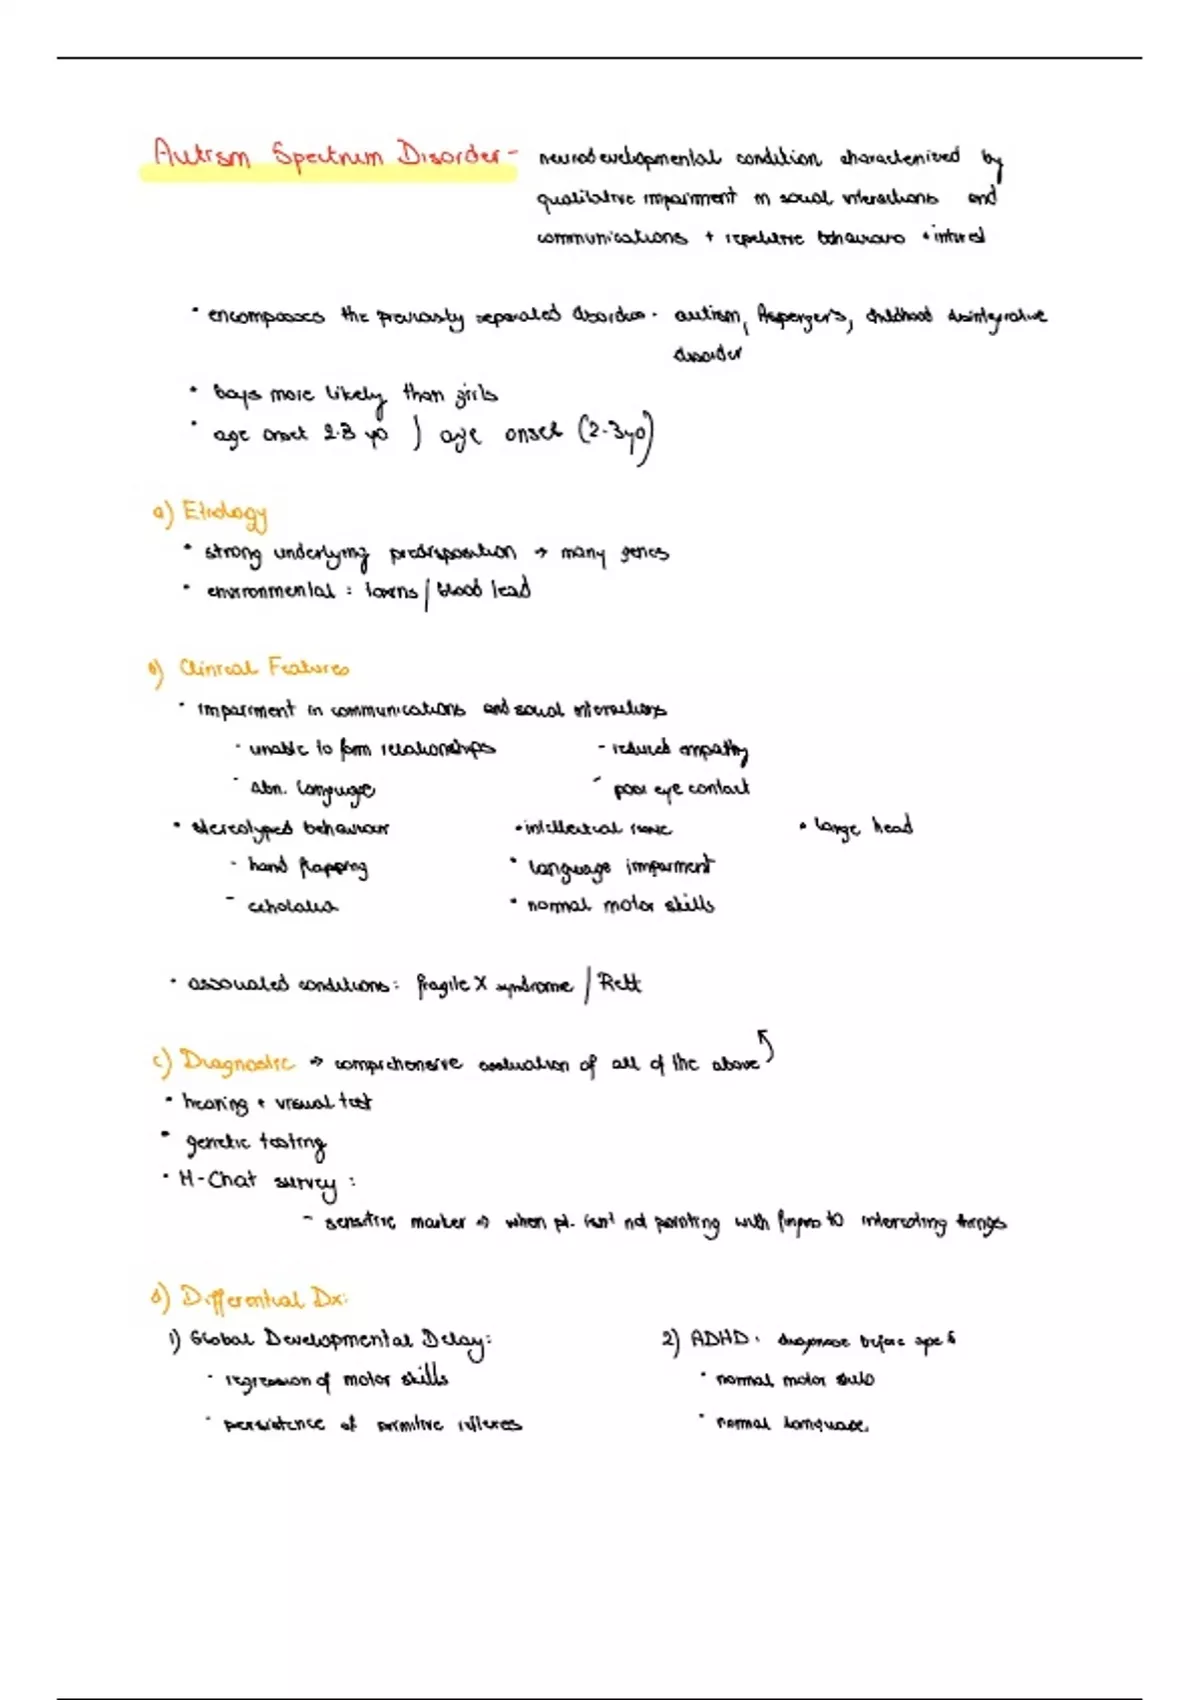 Autism Spectrum Disorder - neurodevelopmental condition characterized by
qualitative impairment in social interactions and
communications + repetitive behaviours + interest
• encompasses the previously separated disorders - autism, Asperger's, childhood disintegrative
disorder
• boys more likely than girls
• age onset 2-3 yo ) age onset (2-3yo)
a) Etiology
• strong underlying predisposition → many genes
• environmental : toxins / blood lead
b) Clinical Features
• impairment in communications and social interactions
- unable to form relationships - reduced empathy
- abn. language - poor eye contact
• stereotyped behaviour • intellectual • large head
- hand flapping • language impairment
- echolalia • normal motor skills
• associated conditions : fragile X syndrome / Rett
c) Diagnostic → comprehensive evaluation of all of the above
• hearing + visual test
• genetic testing
• M-Chat survey :
- sensitive marker → when pt. isn't not pointing with to interesting things
d) Differential Dx:
1) Global Developmental Delay: 2) ADHD: diagnose before age
• regression of motor skills • normal motor skills
• persistence of primitive reflexes • normal language.